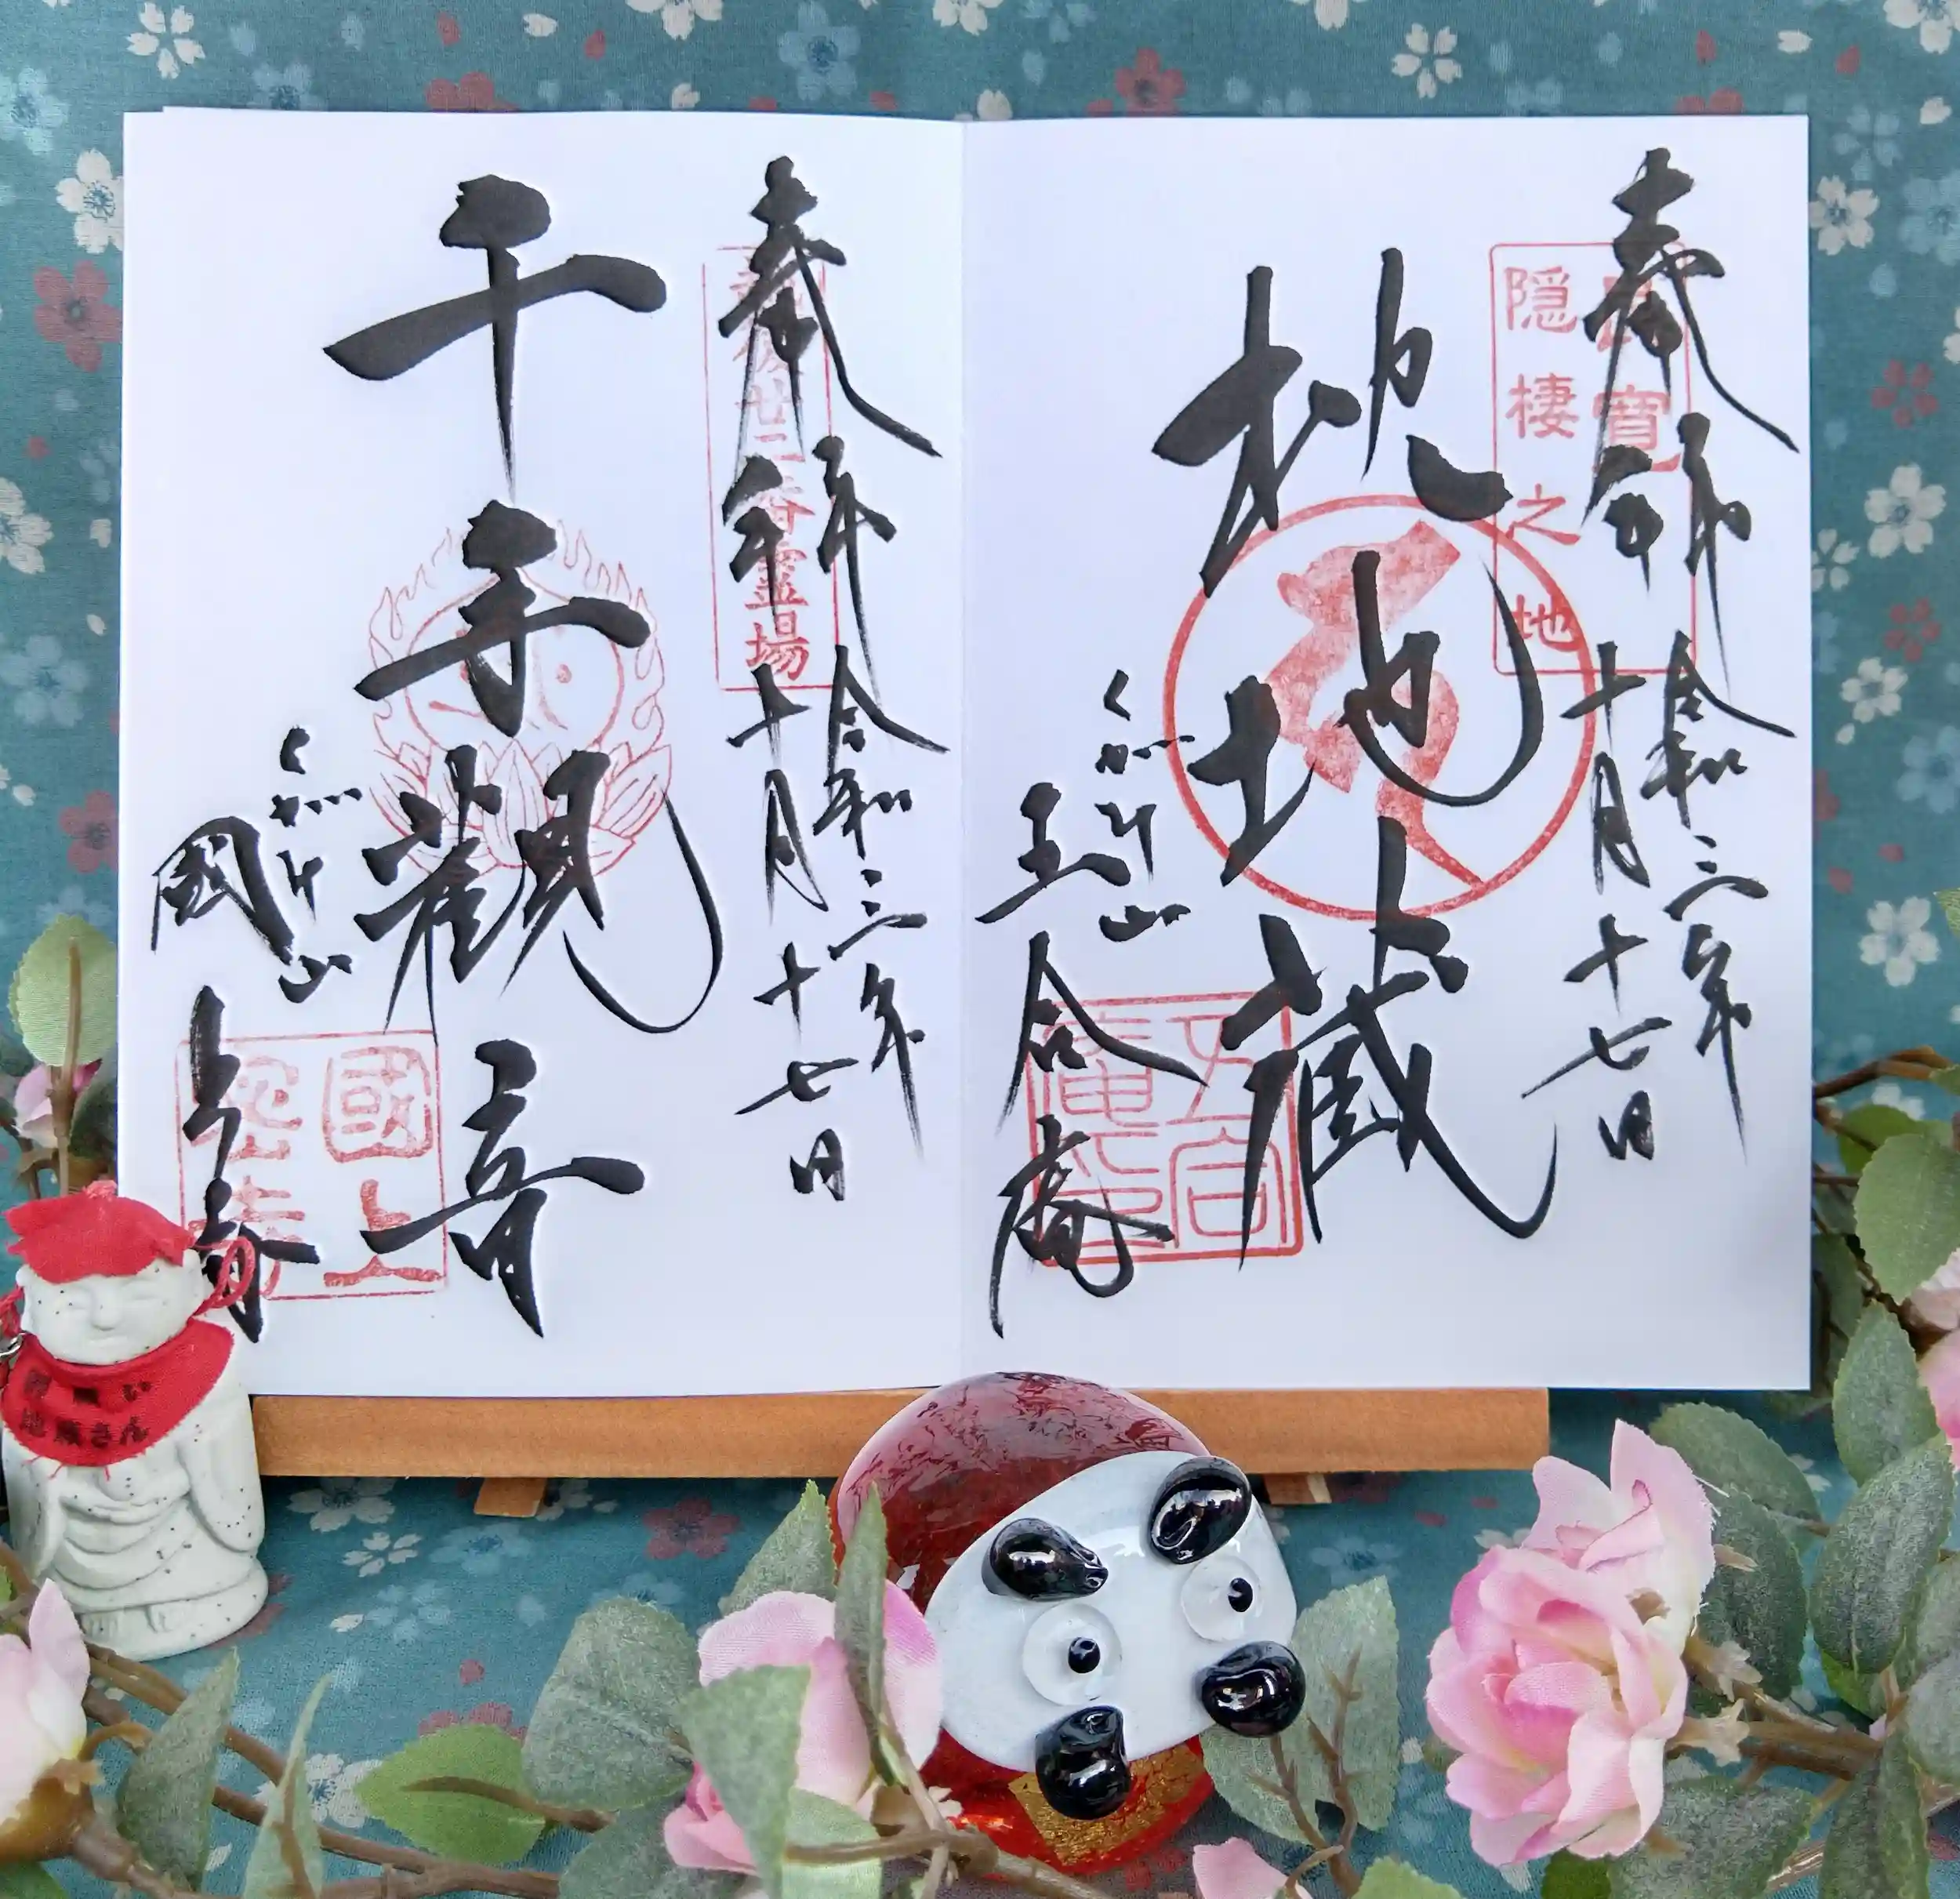 奉拝
令和三年
十月十七日
良寛
隠棲之地
枕地蔵
くがみ山
五合庵
五合
庵印
奉拝
令和三年
十月十七日
越後廿二番霊場
千手觀音
くがみ山
國上寺
國上
い
地蔵さん